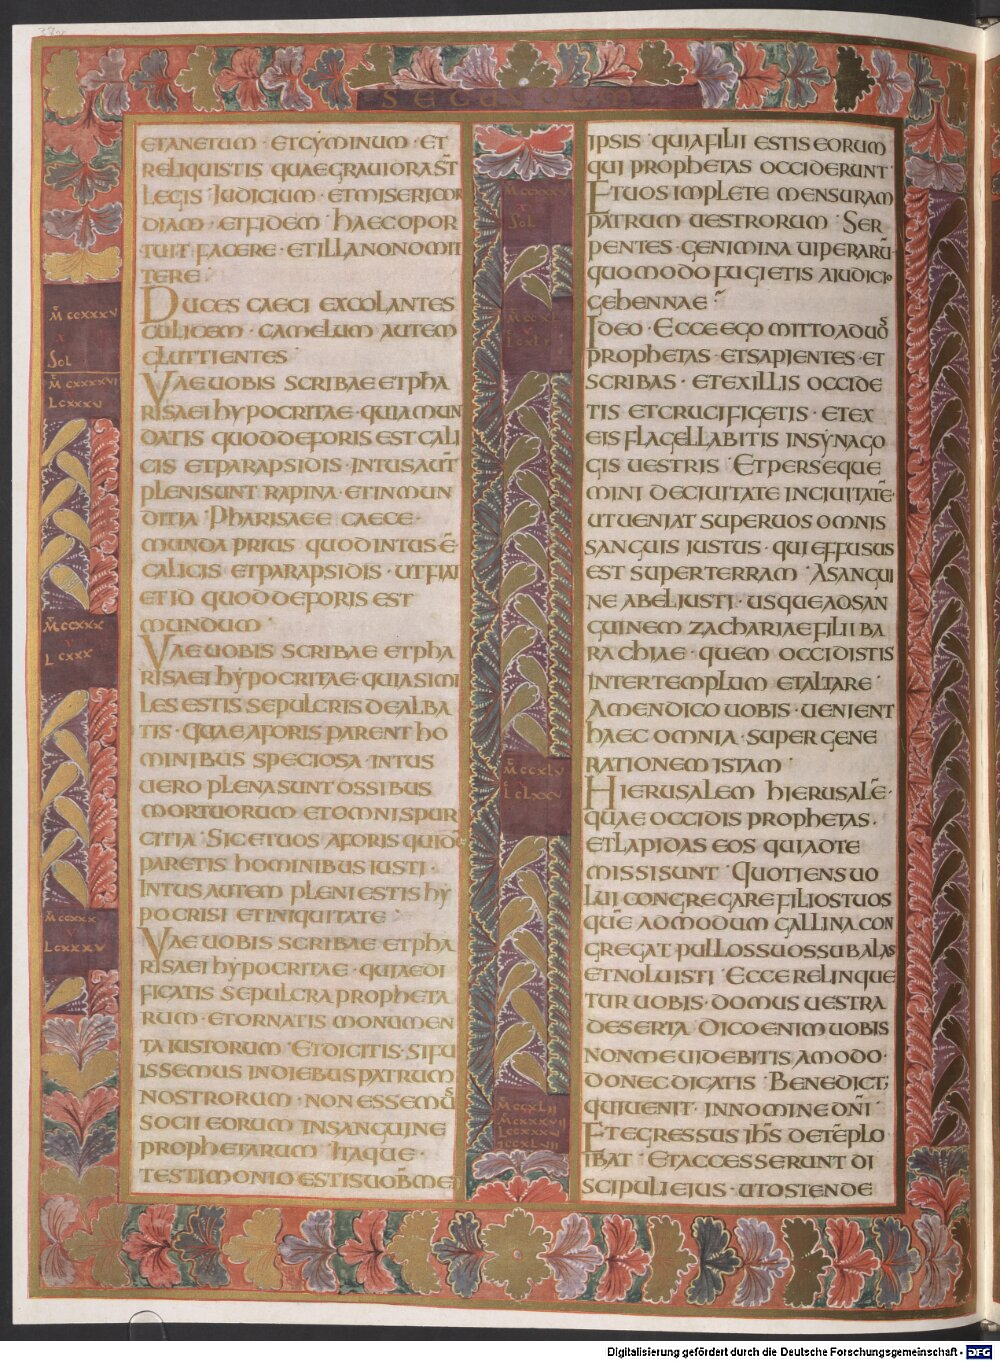 37v
SECUNDUM
ETANETUM · ETCYMINUM · ET
RELIQUISTIS QUAEGRAVIORAST̄
LEGIS · JUDICIUM · ETMISERICOR
DIAM · ETFIDEM · HAECOPOR
TUIT FACERE · ETILLANONOMIT
TERE ·
DUCES CAECI EXCOLANTES
CULICEM · CAMELUM AUTEM
GLUTTIENTES
VAEUOBIS SCRIBAE ETPHA
RISAEI HYPOCRITAE · QUIAMUN
DATIS QUODDEFORIS EST CALI
CIS ETPARAPSIDIS · INTUSAUT̄
PLENISUNT RAPINA · ETINMUN
DITIA · PHARISAEE CAECE ·
MUNDA PRIUS QUODINTUS Ē ·
CALICIS ETPARAPSIDIS · UTFIAT
ET ID QUODDEFORIS EST
MUNDUM ·
VAEUOBIS SCRIBAE ETPHA
RISAEI HYPOCRITAE · QUIASIMI
LES ESTIS SEPULCRIS DEALBA
TIS · QUAEAFORIS PARENT HO
MINIBUS SPECIOSA · INTUS
UERO PLENASUNT OSSIBUS
MORTUORUM ETOMNISPUR
CITIA · SICETUOS AFORIS QUIDE
PARETIS HOMINIBUS IUSTI ·
INTUS AUTEM PLENI ESTIS HY
POCRISI ETINIQUITATE ·
VAE UOBIS SCRIBAE ETPHA
RISAEI HYPOCRITAE · QUIAEDI
FICATIS SEPULCRA PROPHETA
RUM · ETORNATIS MONUMEN
TA IUSTORUM · ETDICITIS · SIFU
ISSEMUS INDIEBUS PATRUM
NOSTRORUM · NON ESSEMUS
SOCII EORUM INSANGUINE
PROPHETARUM · ITAQUE ·
TESTIMONIO ESTISUOB̄ MET
M̄ CCXXXV
SOL
M̄ CXXXXVI
LCXXXV
M̄ CCXXX
L CXXX
M̄ CCXXX
LCXXXV
IPSIS · QUIAFILII ESTIS EORUM
QUI PROPHETAS OCCIDERUNT ·
ETUOS IMPLETE MENSURAM
PATRUM UESTRORUM · SER
PENTES · GENIMINA UIPERARŪ ·
QUOMODO FUGIETIS AIUDICIO
GEHENNAE ·
IDEO · ECCE EGO MITTO ADUOS
PROPHETAS · ETSAPIENTES · ET
SCRIBAS · ETEXILLIS OCCIDE
TIS ETCRUCIFIGETIS · ETEX
EIS FLAGELLABITIS INSYNAGO
GIS UESTRIS · ETPERSEQUE
MINI DECIUITATE INCIUITATĒ ·
UTUENIAT SUPERUOS OMNIS
SANGUIS IUSTUS · QUI EFFUSUS
EST SUPERTERRAM · ASANGUI
NE ABELIUSTI · USQUEADSAN
GUINEM ZACHARIAEFILII BA
RACHIAE · QUEM OCCIDISTIS
INTERTEMPLUM ETALTARE ·
AMENDICO UOBIS · UENIENT
HAEC OMNIA · SUPER GENE
RATIONEM ISTAM ·
HIERUSALEM HIERUSALĒ ·
QUAE OCCIDIS PROPHETAS ·
ETLAPIDAS EOS QUIADTE
MISSISUNT · QUOTIENS UO
LUI CONGREGARE FILIOSTUOS
QUĒ ADMODUM GALLINA CON
GREGAT PULLOSSUOS SUBALAS
ETNOLUISTI · ECCE RELINQUE
TUR UOBIS · DOMUS UESTRA
DESERTA · DICO ENIM UOBIS
NONMEUIDEBITIS AMODO ·
DONECDICATIS · BENEDICT;
QUIUENIT · INNOMINE DN̄I ·
ETEGRESSUS IH̄S DETĒPLO
IBAT · ETACCESSERUNT DI
SCIPULI EIUS · UTOSTENDE
M̄ CCXXXV
SOL
M̄ CCXLV
L CLXXV
M̄ CCXLII
M̄ CXXXVII
Digitalisierung gefördert durch die Deutsche Forschungsgemeinschaft -
DFG